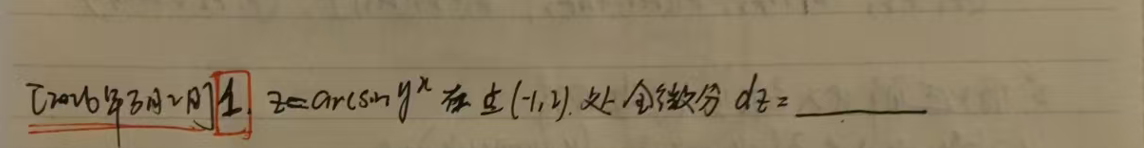 [2026年3月2日] 1. z=arcsin y^x 在点(-1,2).处全微分 dz=________